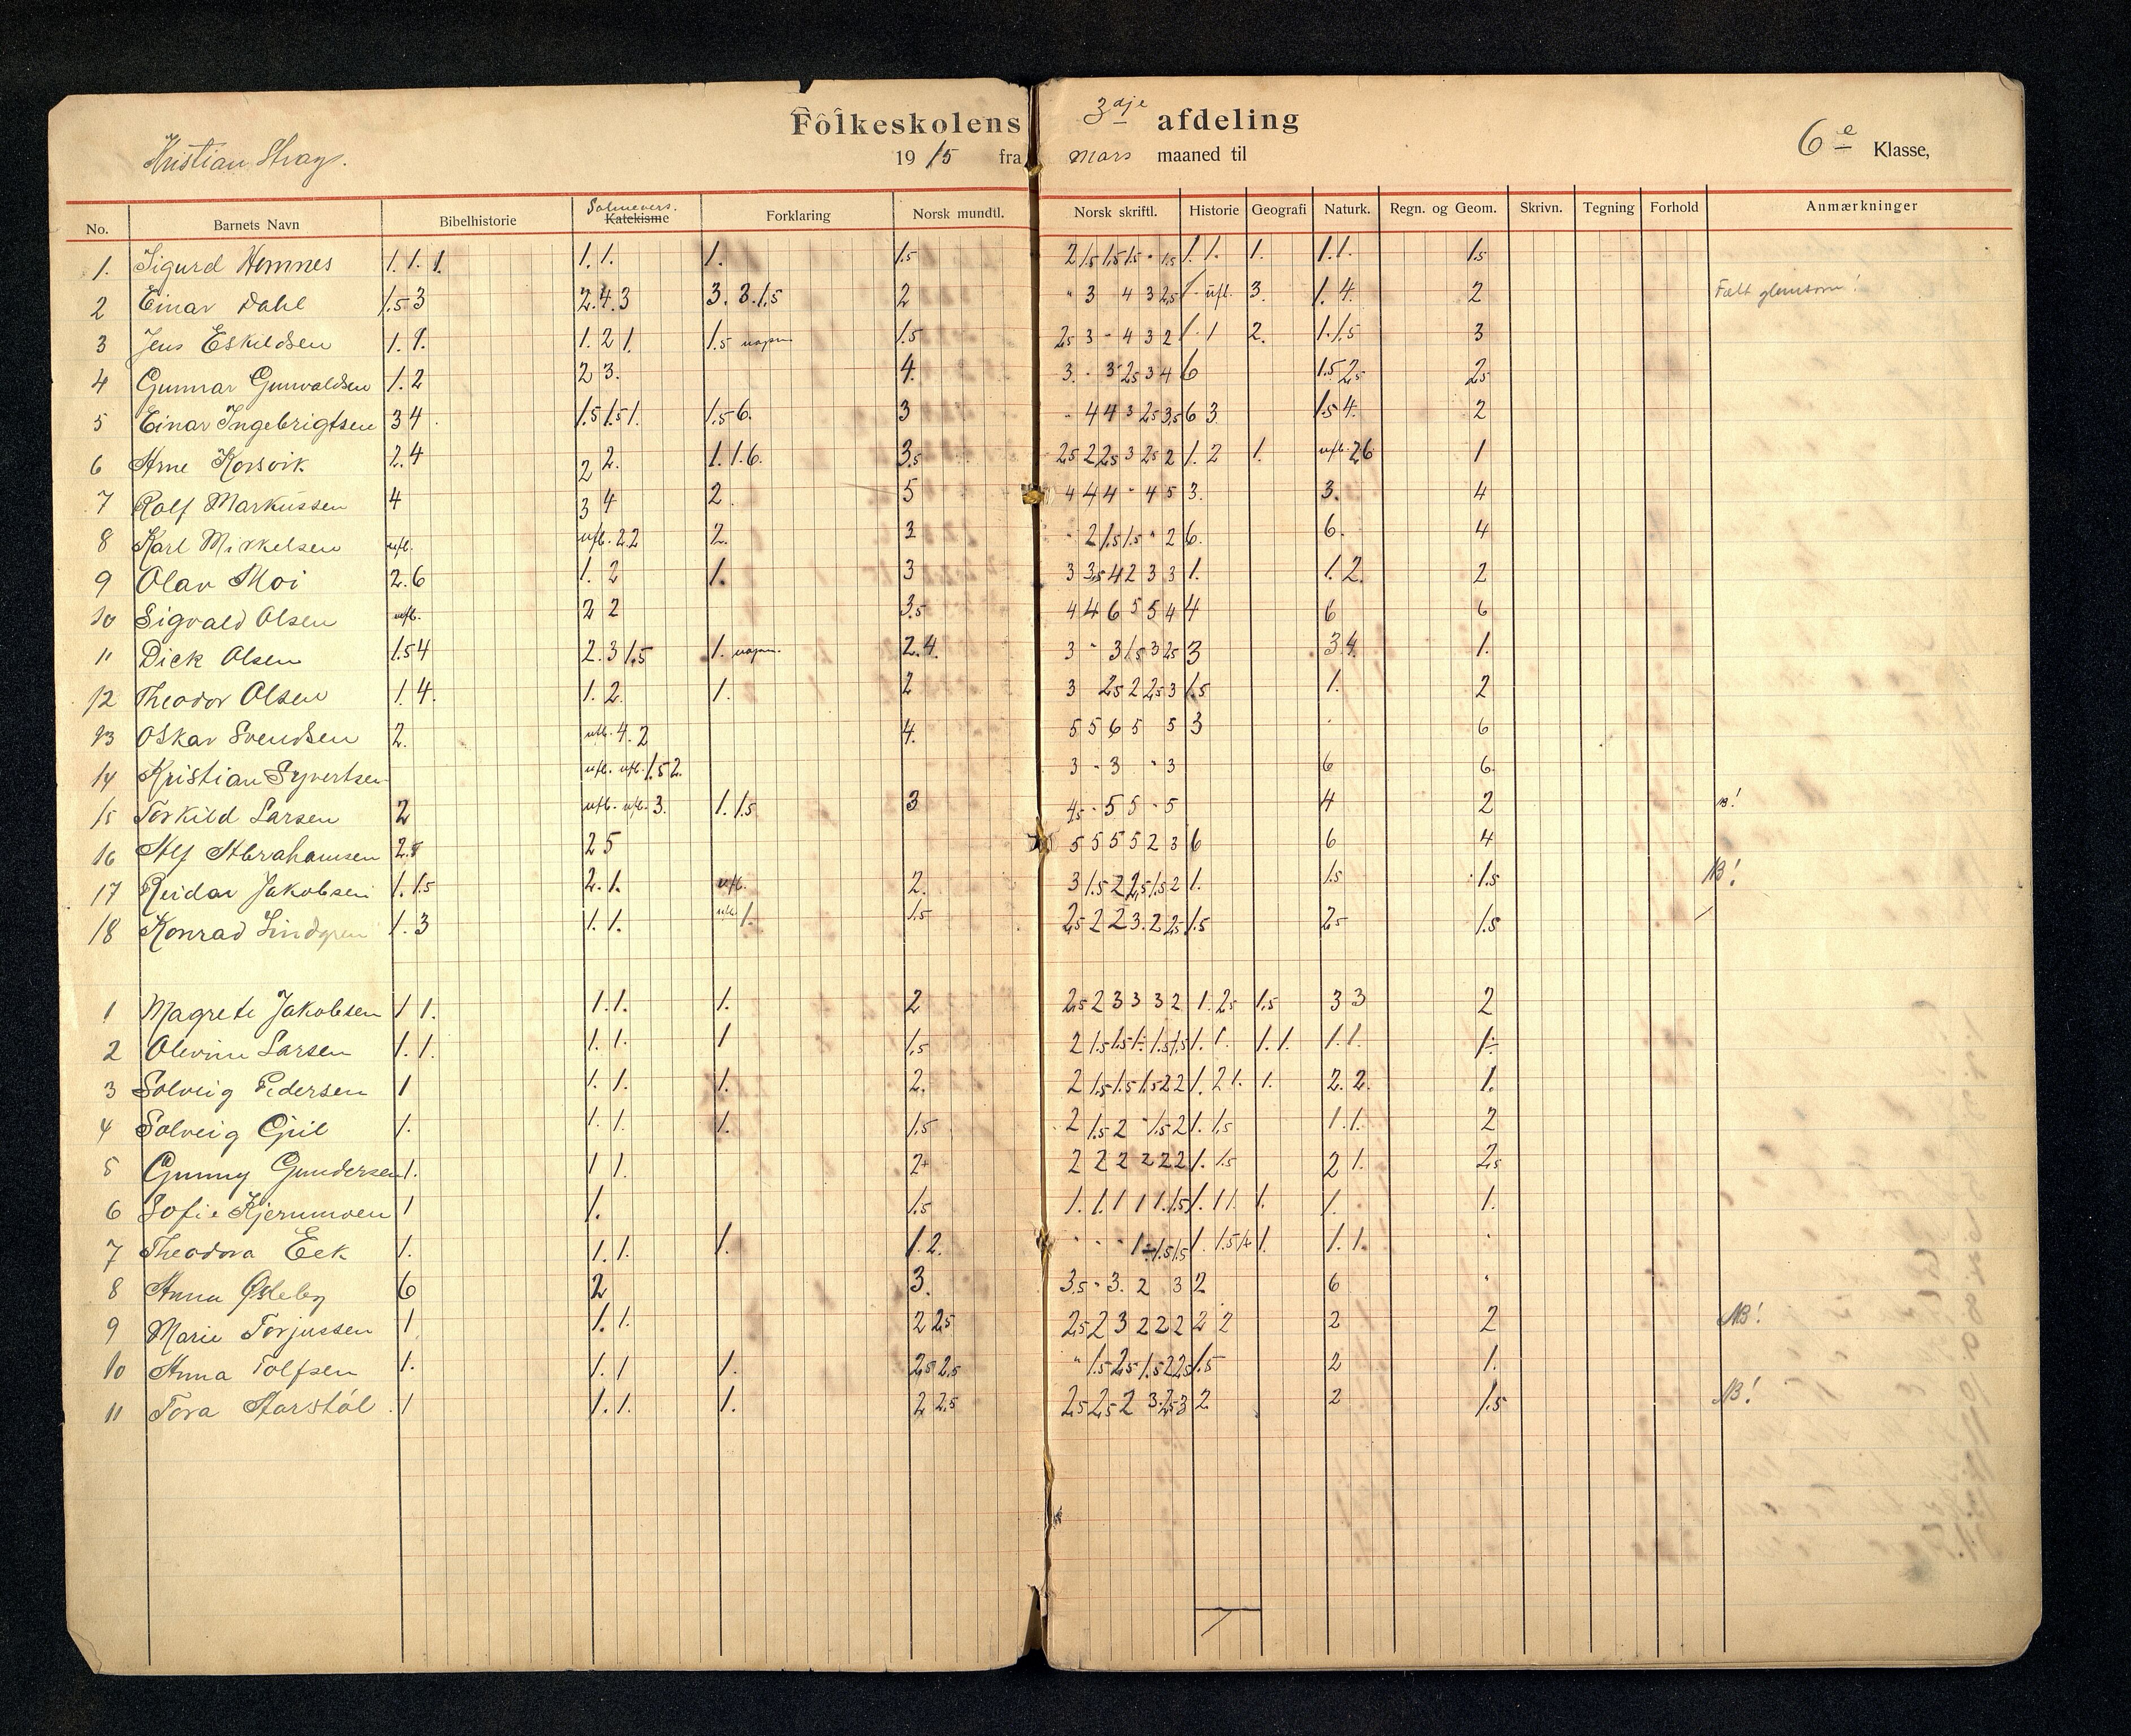 Folkeskolens 3dje afdeling 6e Klasse,
Kristian 1915 fra mars maaned til
No. Barnets Navn Bibelhistorie Salmevers. Katekisme Forklaring Norsk mundtl. Norsk skriftl. Historie Geografi Naturk. Regn. og Geom. Skrivn. Tegning Forhold Anmærkninger
1. Sigurd Hemnes 1. 1. 1. 1. 1. 1. 1.5 2 1.5 1.5 1.5 " 1.5 1. 1. 1. 1. 1. 1.5
2 Einar Dahl 1.5 3 2. 4. 3 3. 3. 1.5 2 " 3 4 3 2.5 1 ufl. 3. 1. 4. 2 Fælt glemsom!
3 Jens Eskildsen 1. 1. 1. 2 1. 1.5 1.5 2.5 3 - 4 3 2 1. 1 2. 1. 1.5 3
4 Gunnar Gunvaldsen 1. 2 2 3. 4. 3. - 3 2.5 3 4 6 1.5 2.5 2.5
5 Einar Ingebrigtsen 3 4 1.5 1.5 1. 1.5 6. 3 - 4 4 3 2.5 3.5 6 3 1.5 4. 2
6 Arne Korsvik 2. 4 2 2. 1. 1. 6. 3.5 2.5 2 2.5 3 2.5 2 1. 2 1. ufb. 2 6 1
7 Rolf Markussen 4 3 4 2. 5 4 4 4 - 4 5 3. 3. 4
8 Karl Mikkelsen ufb. ufb. 2 2 2. 3 " 2 1.5 1.5 " 2 6. 6. 4
9 Olav Moi 2. 6 1. 2 1. 3 3 3.5 4 2 3 3 1. 1. 2. 2
10 Sigvald Olsen ufb. 2 2 3.5 4 4 6 5 5 4 4 6 6
11 Dick Olsen 1.5 4 2. 3 1.5 1. 2. 4. 3 " 3 1.5 3 2.5 3 3 4. 1.
12 Theodor Olsen 1. 4. 1. 2. 1. 2 3 2.5 2 2.5 3 1.5 1. 2
13 Oskar Svendsen 2. ufb. 4. 2 4. 5 5 6 5 5 3 6
14 Kristian Syvertsen ufb. ufb. 1.5 2. 3 - 3 " 3 6 6.
15 Torkild Larsen 2 ufb. ufb. 3. 1. 1.5 3 4.5 - 5 5 - 5 4 2
16 Alf Abrahamsen 2. 2 5 5 5 5 5 2 3 6 6 4
17 Reidar Jakobsen 1. 1.5 2. 1. ufb. 2. 3 1.5 2 2.5 1.5 2 1. 1.5 1.5 NB!
18 Konrad Lindgren 1. 3 1. 1. ufb. 1. 1.5 2.5 2 2 3. 2 2.5 1.5 2.5 1.5
1 Magrete Jakobsen 1 1. 1. 1. 1. 2 2.5 2 3 3 3 2 1. 2.5 1.5 3 3 2
2 Olevine Larsen 1. 1. 1. 1. 1 1.5 2 1.5 1.5 1÷ 1.5 1.5 1. 1. 1. 1. 1. 1. 1÷
3 Solveig Pedersen 1 1. 1. 1. 2. 2 1.5 1.5 1.5 2 2 1. 2 1. 1. 2. 2. 1.
4 Solveig Gill 1. 1. 1. 1. 1.5 2 1.5 2 " 1.5 2 1. 1.5 1. 1. 2
5 Gunny Gundersen 1. 1 1. 2+ 2 2 2 2 2 2 1. 1.5 2 1. 2.5
6 Sofie Kjerumoen 1 1. 1.5 1. 1. 1 1 1. 1.5 1. 1 1. 1. 1. 1.
7 Theodora Eek 1. 1. 1. 1. 1. 2. " " " 1÷ 1.5 1.5 1. 1.5 1+ 1. 1. 1.
8 Anna Østeby 6 2 3. 3.5 - 3. 2 3 2 6
9 Marie Torjussen 1. 1. 1. 2 2.5 2.5 2 3 2 2 2 2 2 2 2 NB!
10 Anna Tolfsen 1. 1. 1 1. 2.5 2.5 " 1.5 2.5 1.5 2 2.5 1.5 2 1.
11 Tora Aarstøl 1 1. 1. 1. 2 2.5 2.5 2.5 2 3 2.5 3 2 2 1.5 NB!